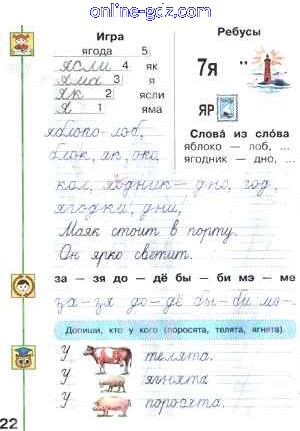 online-gdz.com
Игра
ягода 5
ясли 4 як
яма 3 я
як 2 ясли
я 1 яма
Ребусы
7я "
ЯР
Слова́ из сло́ва
яблоко — лоб, ...
ягодник — дно, ...
яблоко – лоб,
блок, як, око,
кол, ягодник – дно, год,
ягодки, дни,
Маяк стоит в порту.
Он ярко светит.
за – зя до – дё бы – би мэ – ме
за – зя до – дё бы – би мэ –
Допиши, кто у кого (поросята, телята, ягнята).
У телята.
У ягнята
У поросята.
22